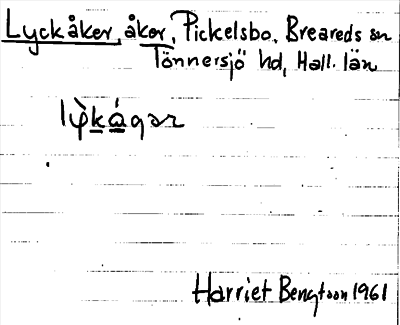 Lyckåker, åker, Pickelsbo, Breareds sn
Tönnersjö hd, Hall. län
Harriet Bengtson 1961